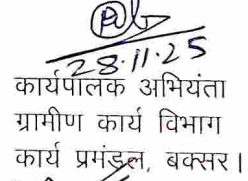 28.11.25
कार्यपालक अभियंता
ग्रामीण कार्य विभाग
कार्य प्रमंडल, बक्सर।